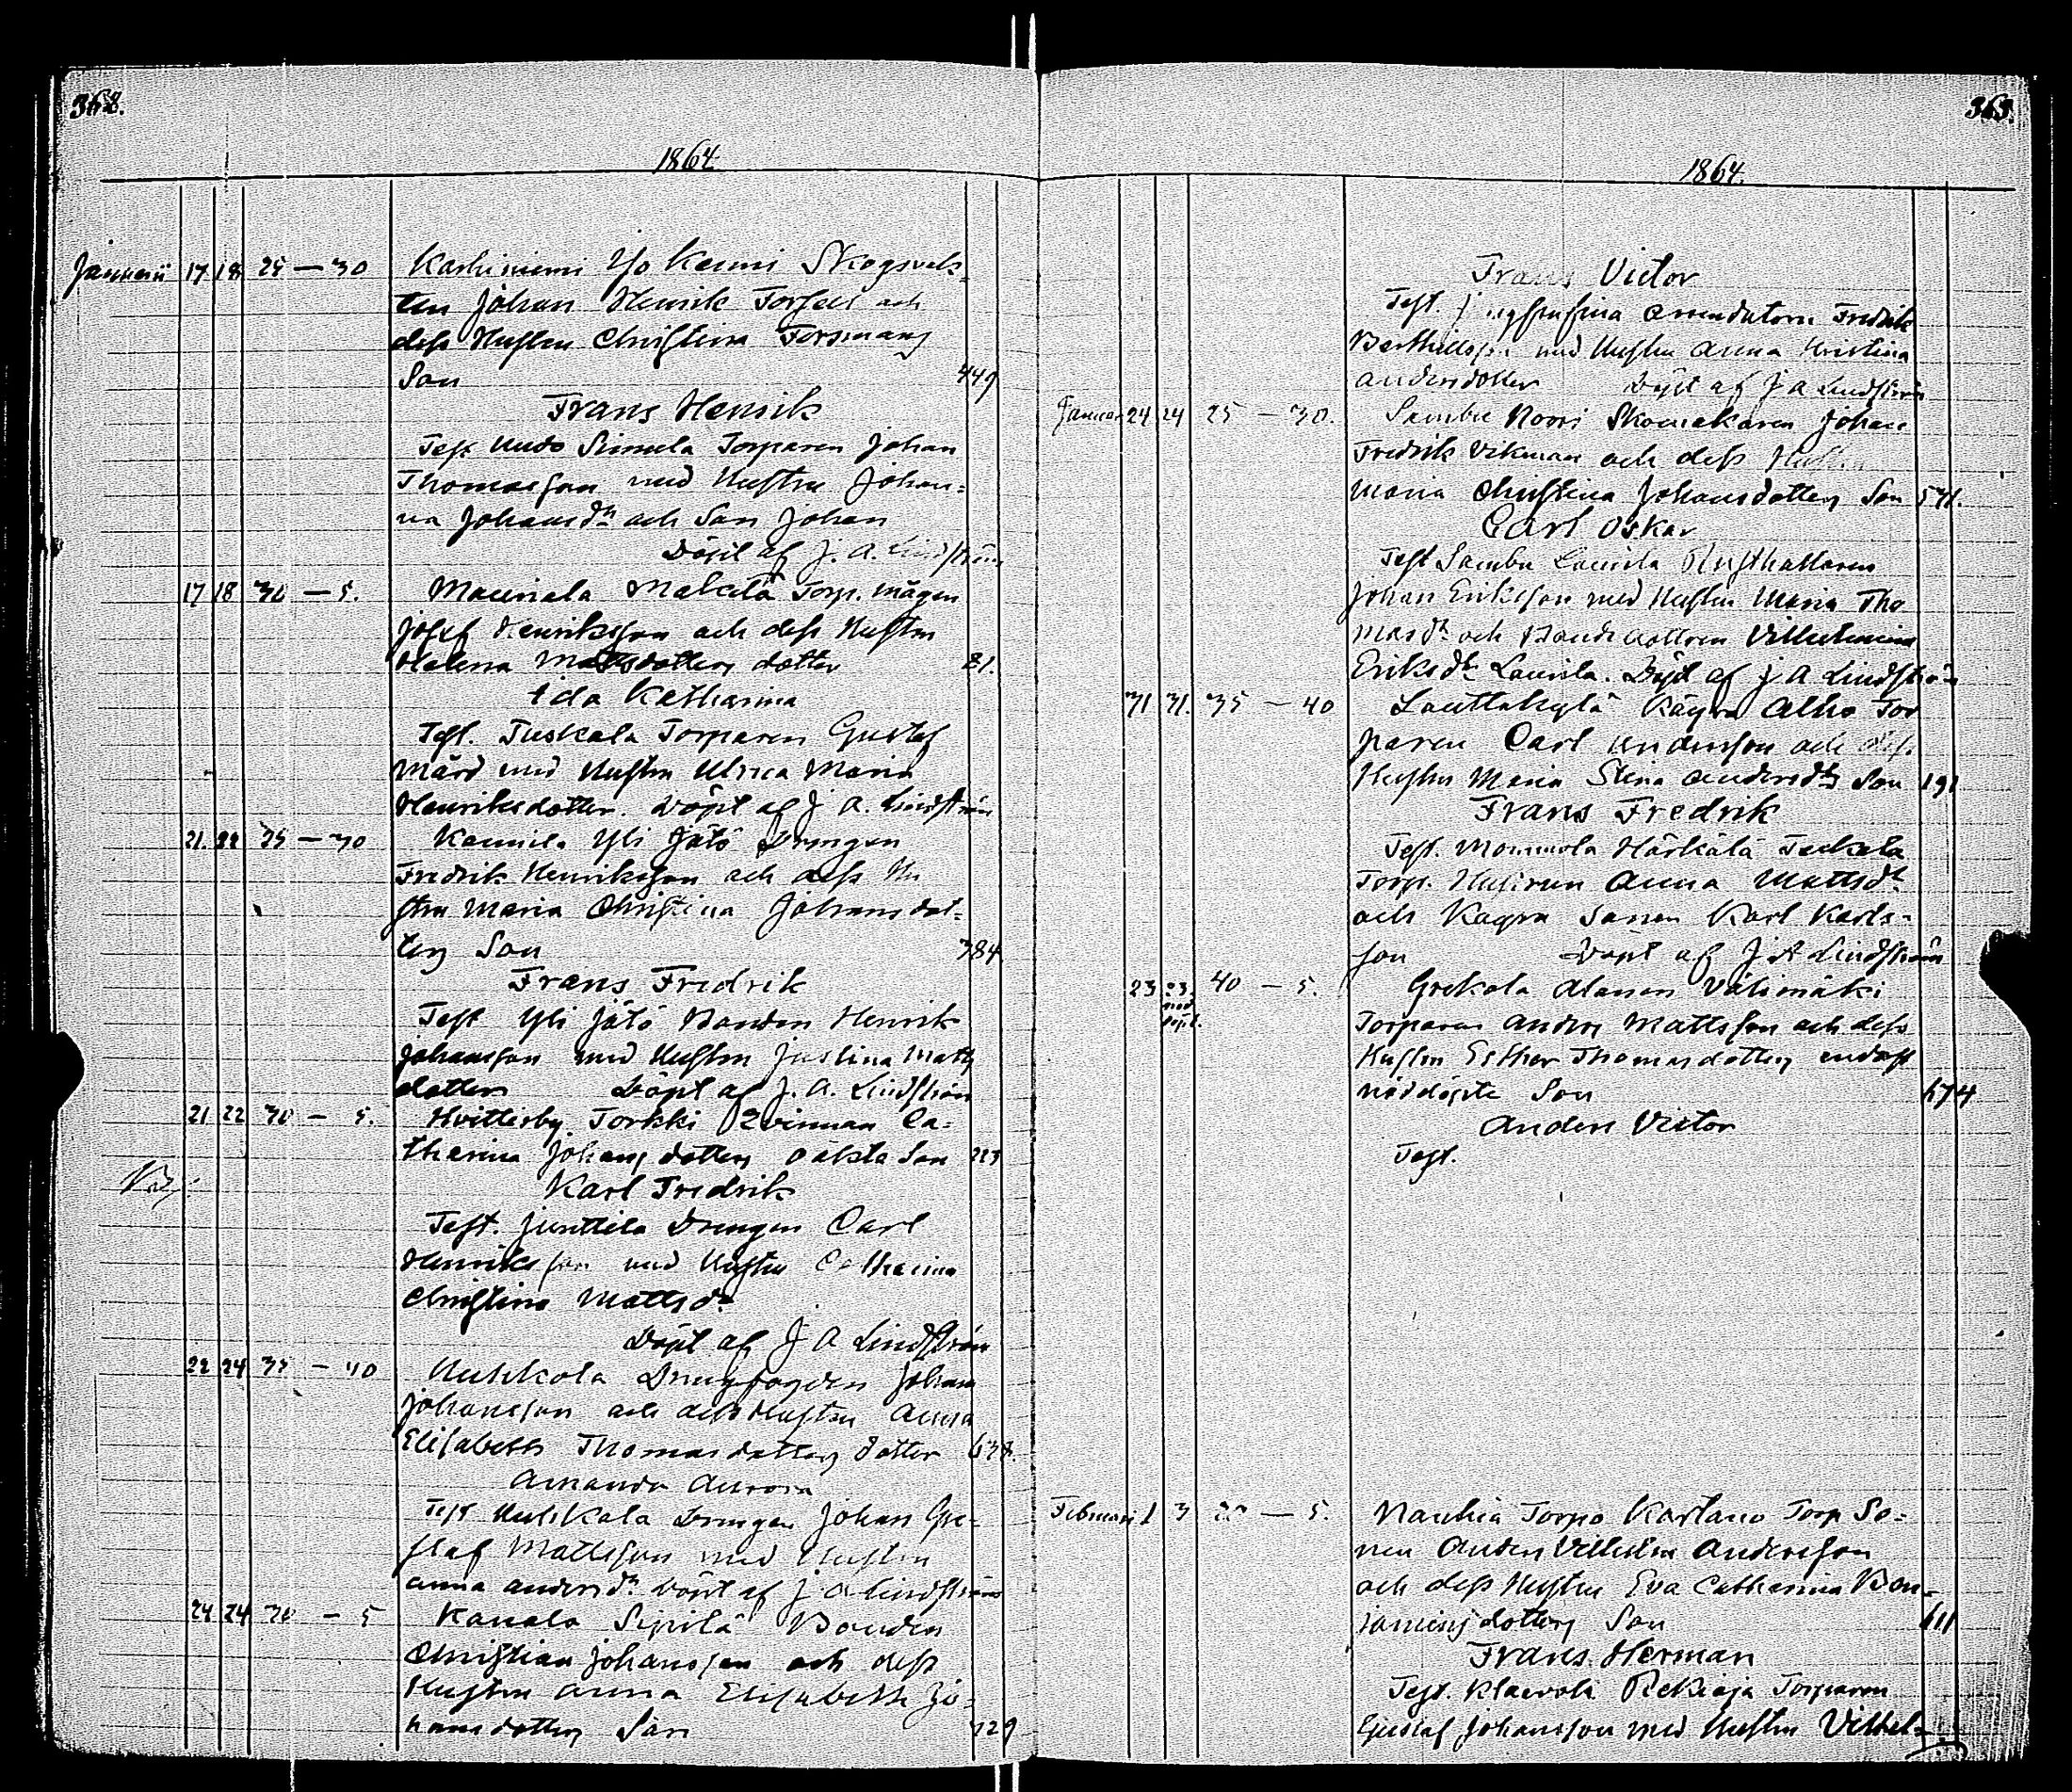 362.
1864.
Januarii 17 18 25 — 30 Karhiniemi Yso Keuni Skogsvak-
ten Johan Henrik Forssell och
dess Hustru Christina Forsmans
Son 449
Frans Henrik
Test. Uudo Simula Torparen Johan
Thomasson med Hustru Johan=
na Johansdr och Son Johan
Döpt af J. A. Lindström
17 18 30 — 5. Mauriala Makelä Torp. mågen
Josef Henriksson och dess Hustru
Helena Mattsdotters dotter 81.
Ida Katharina
Test. Tuskala Torparen Gustaf
Mård med Hustru Ulrica Maria
Henriksdotter. Döpt af J. A. Lindström
21. 22 25 — 30 Kaunila Yli Jätö Drengen
Fredrik Henriksson och dess Hu
stru Maria Christina Johansdot=
ters Son 384
Frans Fredrik
Test Yli Jätö Bonden Henrik
Johansson med Hustru Justina Matts
dotter Döpt af J. A. Lindström
21 22 30 — 5. Hvitterby Torkki Qvinnan Ca=
tharina Johansdotters oäkta Son 223
Karl Fredrik
Test. Junttila Drengen Carl
Henriksson med Hustru Catharina
Christina Mattsdr
Döpt af J A Lindström
22 24 35 — 40 Huhkola Drengfogden Johan
Johansson och dess Hustru Anna
Elisabeth Thomasdotters dotter 638.
Amanda Aurora
Test Huhkola Drengen Johan Gu=
staf Mattsson med Hustru
Anna Andersdr Döpt af J A Lindström
24 24 30 — 5 Kanala Sipilä Bonden
Christian Johansson och dess
Hustru Anna Elisabeth Jo=
hansdotters Son 729
363.
1864.
Frans Victor
Test. Arrendatorn Fredrik
Berthilsson med Hustru Anna Kristina
Andersdotter Döpt af J A Lindström
Januari 24 24 25 — 30. Sambu Noori Skomakaren Johan
Fredrik Vikman och dess Hustru
Maria Christina Johansdotters Son 571.
Carl Oskar
Test Sambu Laurila Rusthållaren
Johan Eriksson med Hustru Maria Tho
masdr och Bondedottren Vilhelmina
Eriksdr Laurila. Döpt af J A Lindström
31 31. 35 — 40 Lauttakylä Käyrä Alho Tor
paren Carl Andersson och dess
Hustru Maria Stina Andersdrs Son 191
Frans Fredrik
Test. Mommola Härkälä Teekala
Torp. Hustrun Anna Mattsdr
och Kayra Sonen Karl Karls=
son Döpt af J A Lindström
23 23. nöd döpt. 40 — 5. Grekola Alanen Välimäki
Torparen Anders Mattsson och dess
Hustru Esther Thomasdotters endast
nöddöpte Son 674
Anders Victor
Test.
Februari 1 3 20 — 5. Nauhia Torpo Kartano Torp So=
nen Anders Vilhelm Andersson
och dess Hustru Eva Catharina Ben=
jaminsdotters Son 611
Frans Herman
Test. Klaevola Rekioja Torparen
Gustaf Johansson med Hustru Vilhel=